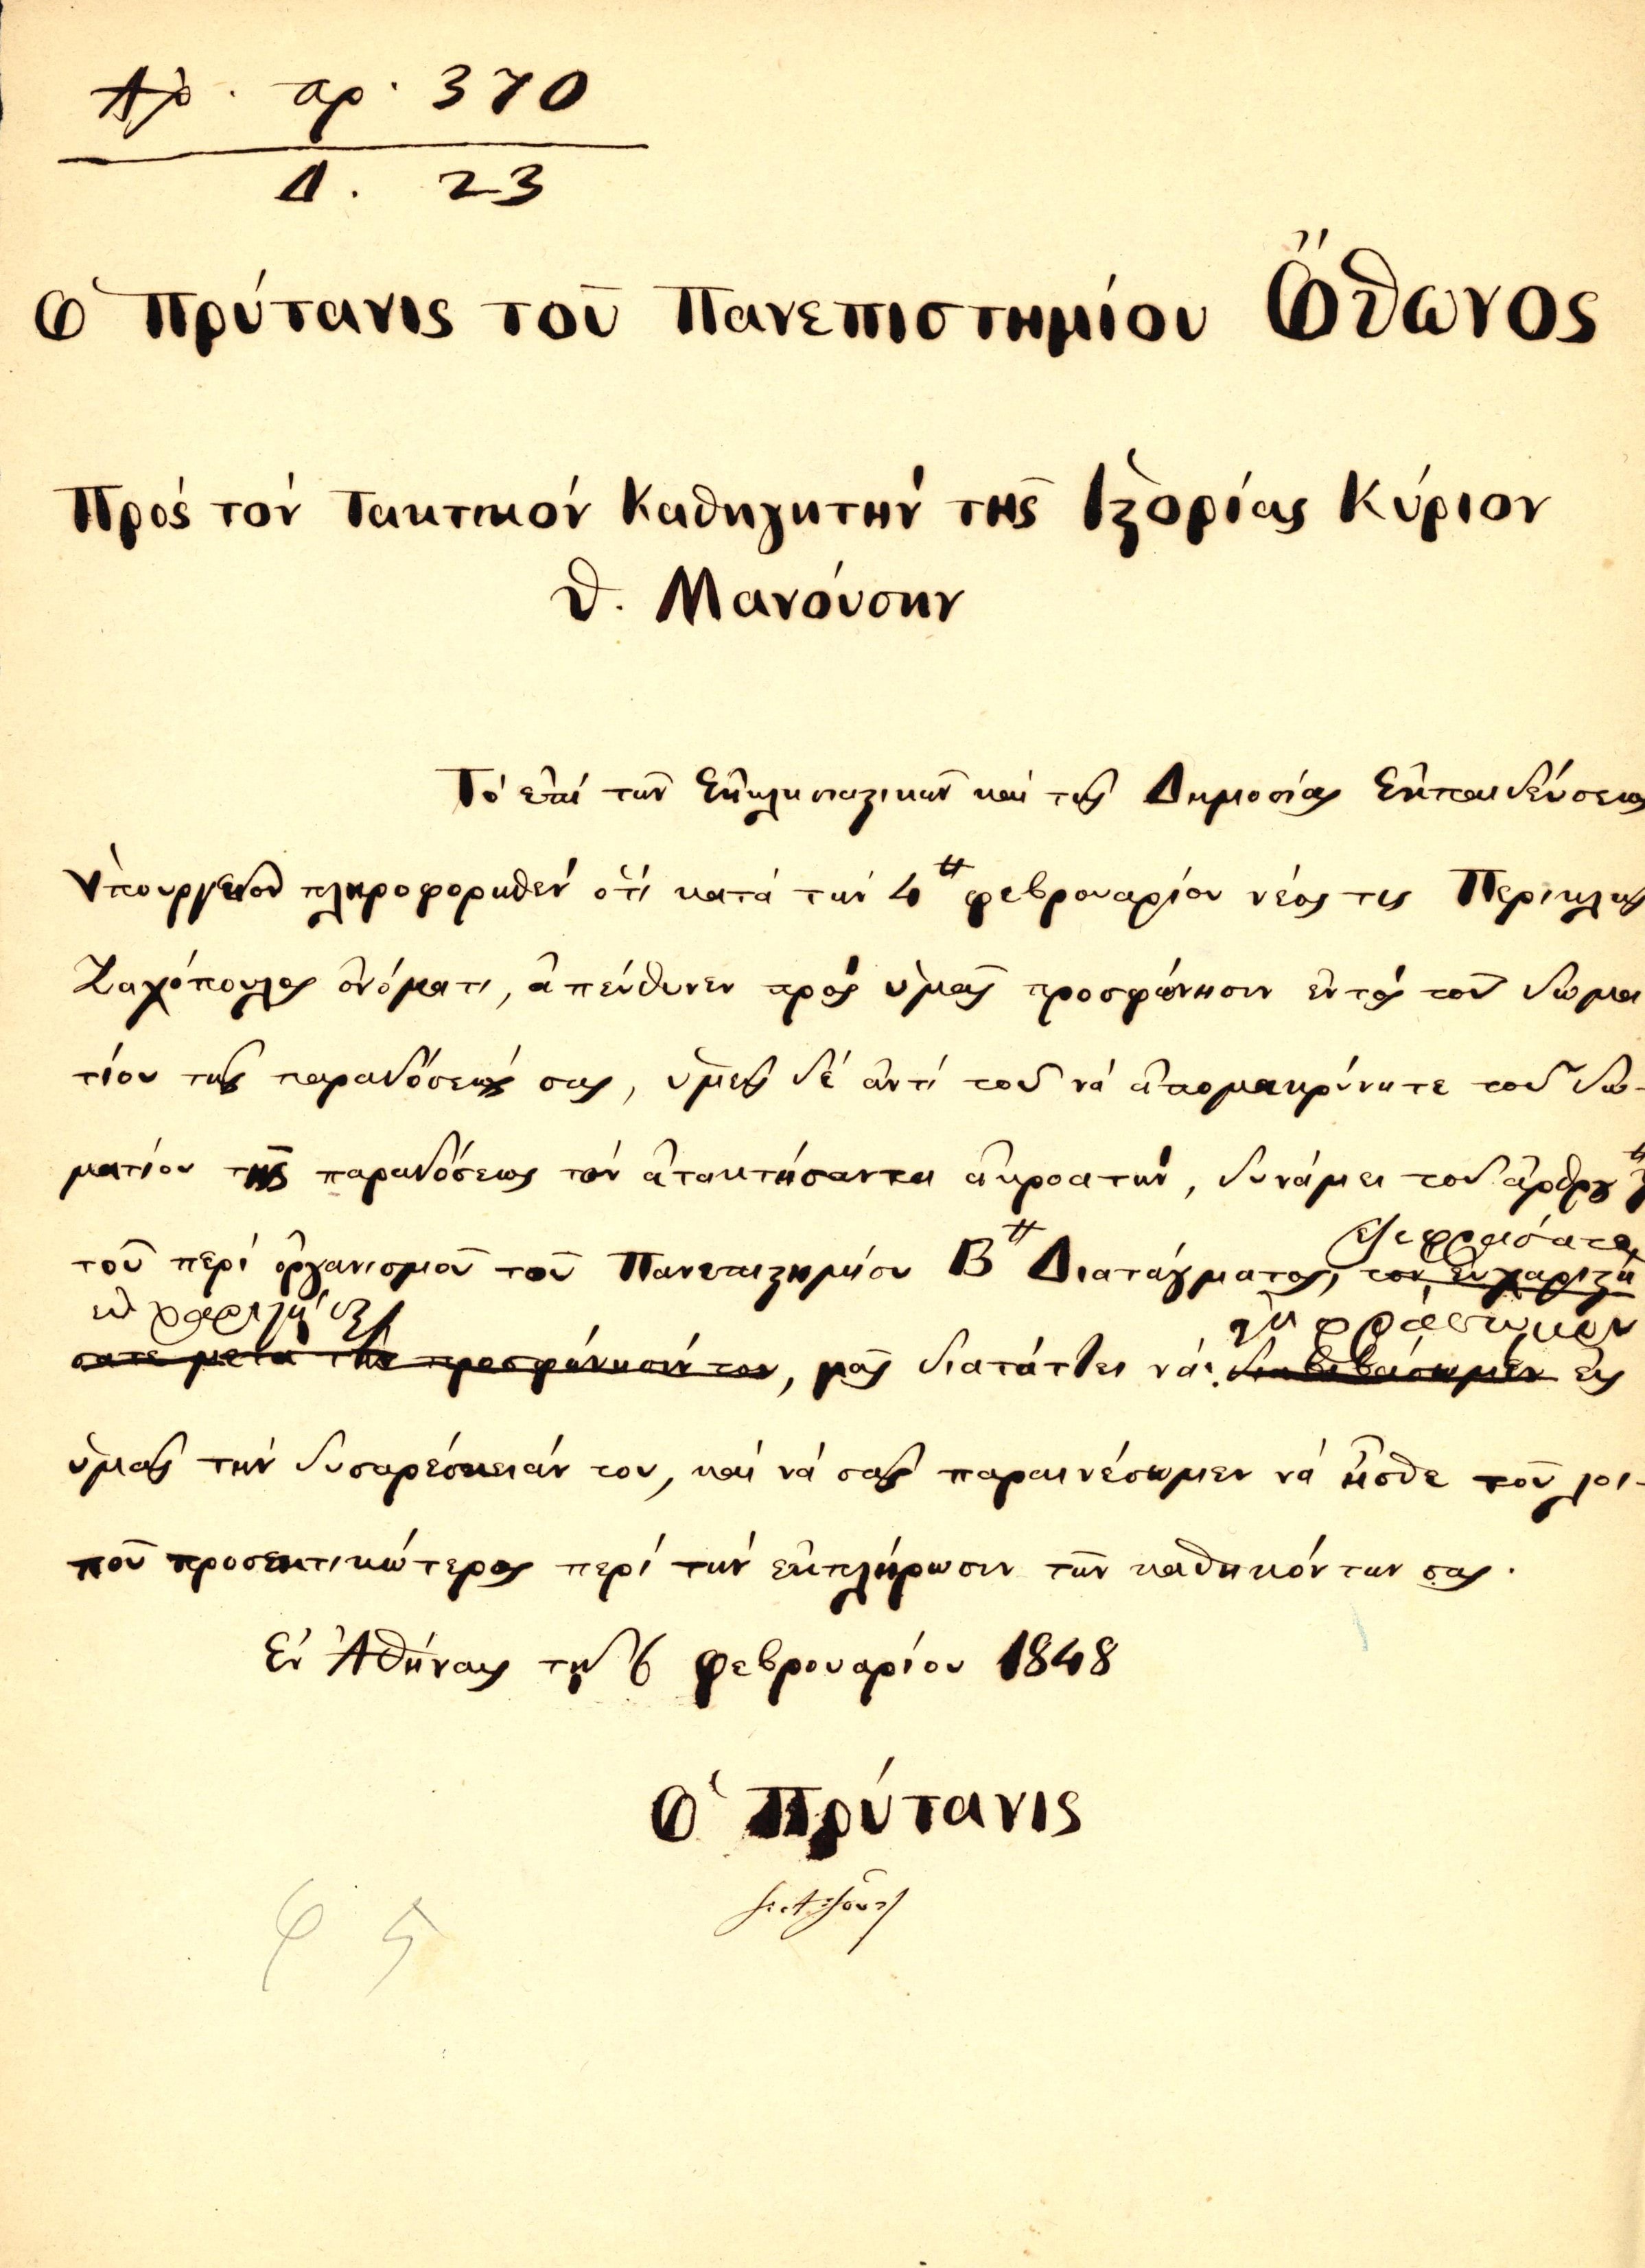 Ἀρ. πρ. 370
Δ. 23
Ὁ Πρύτανις τοῦ Πανεπιστημίου Ὄθωνος
Πρός τόν Τακτικόν Καθηγητήν τῆς Ἱστορίας Κύριον
Θ. Μανούσην
Τό ἐπί τῶν Ἐκκλησιαστικῶν καί τῆς Δημοσίας Ἐκπαιδεύσεως
Ὑπουργεῖον πληροφορηθέν ὅτι κατά τήν 4ην φεβρουαρίου νέος τις Περικλῆς
Ζαχόπουλος ὀνόματι, ἀπεύθυνεν πρός ὑμᾶς προσφώνησιν ἐντός τοῦ δωμα
τίου τῆς παραδόσεώς σας, ὑμεῖς δέ ἀντί τοῦ νά ἀπομακρύνητε τοῦ δω-
ματίου τῆς παραδόσεως τόν ἀτακτήσαντα ἀκροατήν, δυνάμει τοῦ ἄρθρου
ἐξεφράσατε
τοῦ περί ὀργανισμοῦ τοῦ Πανεπιστημίου Β. Διατάγματος, τον εὐχαριστή
εὐχαριστήσεις ἐκφράσωμεν
σατε μετά τήν προσφώνησίν του, μᾶς διατάττει νά διαβιβάσωμεν εἰς
ὑμᾶς τήν δυσαρέσκειάν του, καί νά σᾶς παραινέσωμεν νά ἦσθε τοῦ λοι-
ποῦ προσεκτικώτερος περί τήν ἐκπλήρωσιν τῶν καθηκόντων σας.
Ἐν Ἀθήναις τῇ 6 Φεβρουαρίου 1848
Ὁ Πρύτανις